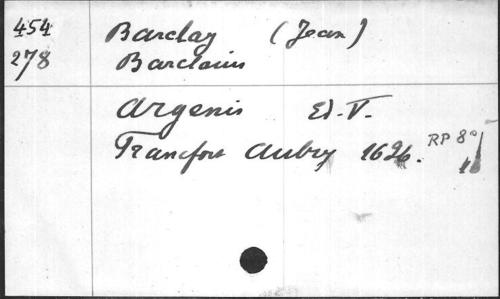 454 Barclay (Jean)
278 Barclaius
Argenis Ed. V.
Francfort Aubry 1626. RP 8°